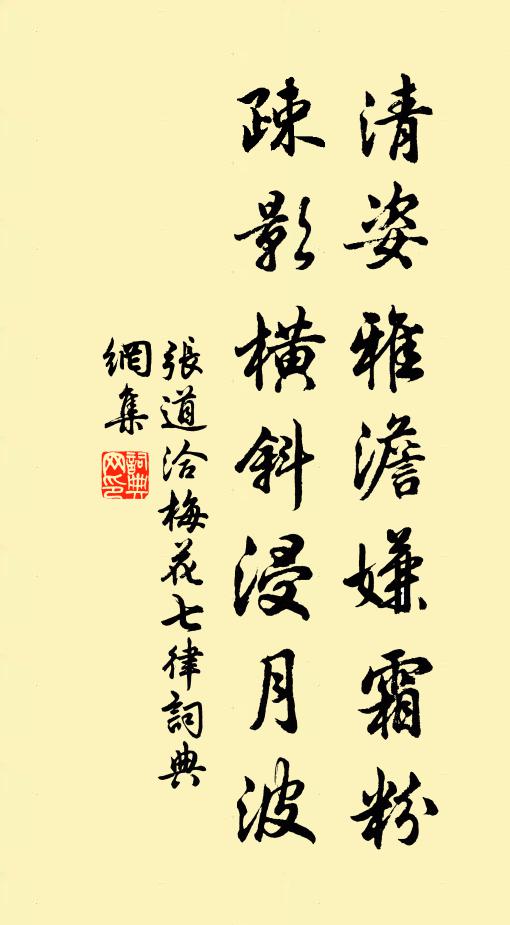 清姿雅澹嫌霜粉
疎影橫斜浸月波
張道洽梅花七律詞典
網集
詞典網印